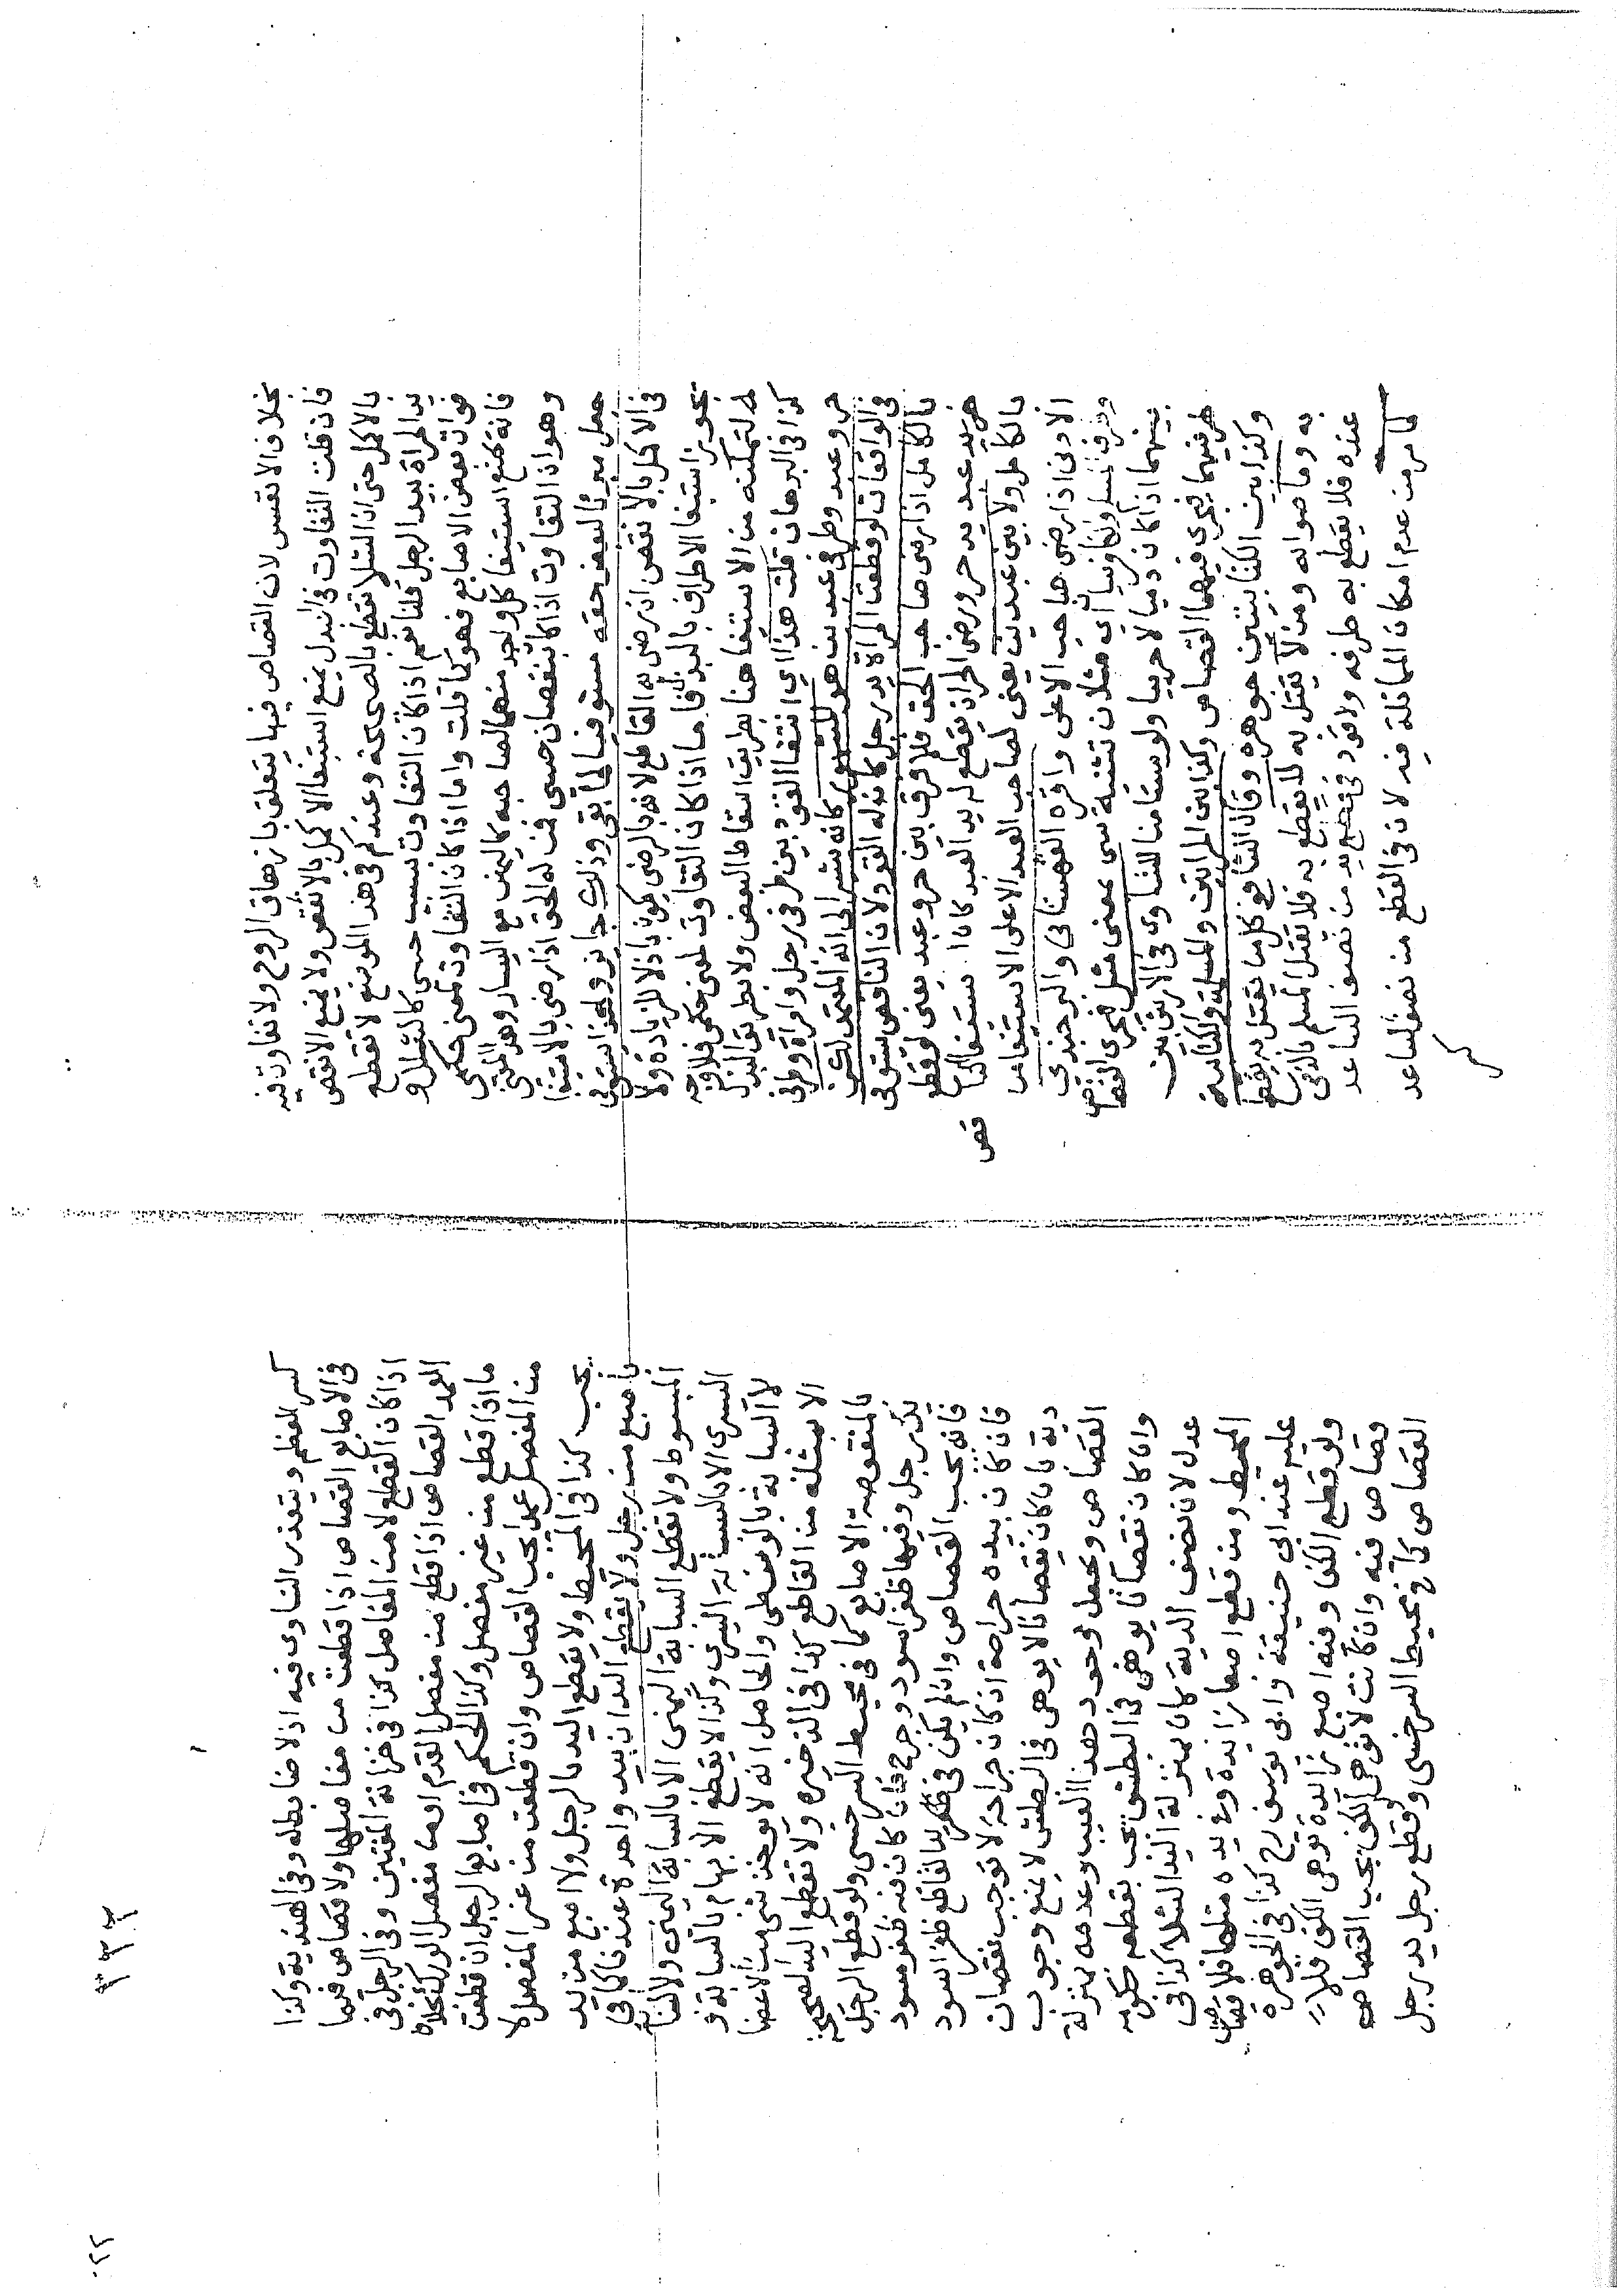 بخلاف الانفس لان القصاص فيها يتعلق بازهاق الروح ولا تفاوت فيه
فان قلت التفاوت في البدل يمنع استيفا الاكمل بالانقص ولا يمنع الانقص
بالاكمل حتى ان الشلا تقطع بالصحيحة وعندكم في هذا الموضع لا تقطع
يد المراة بيد الرجل قلنا نعم اذا كان التفاوت بسبب حسي كالشلل و
فوات بعض الاصابع فهو كما قلت واما اذا كان التفاوت لمعنى حكمي
فانه يمنع استيفا كل واحد منهما لصاحبه كاليمين مع اليسار وهذا لمعنى
وهو ان التفاوت اذا كان بنقصان حسي فمن له الحق اذا رضي بالاستيفا
جعل مبريا لبعض حقه مستوفيا لما بقي وذلك جايز ولا يجوز ان يستوفي
في الاكمل بالانقص ان رضي به القاطع لانه بالرضى يكون باذلا للزيادة ولا
يجوز استيفا الاطراف بالبذل فاما اذا كان التفاوت لمعنى حكمي فلا وجه
له لتمكنه من الاستيفا هنا بطريق اسقاط البعض ولا بطريق البذل
كذا في البرهان قلت هذا اي انتفا القود بين طرفي رجل وامراة وطرفي
حر وعبد وطرفي عبدين هو المشهور كانه يشير الى انه المعتمد لكن
في الواقعات لو قطعت المراة يد رجل كان له القود لان الناقص يستوفى
بالكامل اذا رضي صاحب الحق فلا فرق بين حر وعبد يعني لو قطع
حر يد عبد يد حر ورضي الحر ان يقطع له يد العبد كان استيفا للناقص
بالكامل ولا بين عبدين يعني لصاحب العبد الاعلى الاستيفا من
الادنى اذا رضي صاحب الاعلى واقره القهستاني والبرجندي
وطرف المسلم والكافر سيان اي مثلان تثنية سي بمعنى مثل فيجري القصاص
بينهما اذا كان ذميا لا حربيا ولو مستامنا للتساوي في الارش بين
طرفيهما فيجري فيهما القصاص وكذا بين المراتين والمسلمة والكتابية
وكذا بين الكتابيتين جوهره وقال الشافعي كل من يقتل به يقطع
به وما صوابه ومن لا يقتل به لا يقطع به فلا يقتل المسلم بالذمي
عنده فلا يقطع به طرفه ولا قود في قطع يد من نصف الساعد
كما مر من عدم امكان المماثلة فيه لان في القطع من نصف الساعد
كسر
كسر العظم ويتعذر التساوي فيه اذ لا ضابط له وفي الهندية وكذا
في الاصابع القصاص اذا قطعت من مفاصلها ولا قصاص فيما
اذا كان القطع لا من المفاصل كذا في خزانة المفتين وفي الرجل في
العمد القصاص اذا قطع من مفصل القدم او من مفصل الورك بخلاف
ما اذا قطع من غير مفصل وكذا الحكم في اصابع الرجل ان قطعت
من المفصل عمدا يجب القصاص وان قطعت من غير المفصل لا
يجب كذا في المحيط ولا يقطع اليد بالرجل ولا اصبع من يد
باصبع من رجل ولا يقطع اليدان بيد واحدة عندنا كما في
المبسوط ولا تقطع السبابة اليمنى الا بالسبابة اليمنى ولا السبابة
اليسرى الا بالسبابة اليسرى وكذا لا يقطع الابهام بالسبابة و
لا السبابة بالوسطى والحاصل انه لا يوخذ شي من الاعضا
الا بمثله من القاطع كذا في الذخيره ولا تقطع اليد الصحيحة
بالمنقوصة الاصابع كما في محيط السرخسي ولو قطع الرجل
يد رجل وفيها ظفر اسود وجرح فان كان فيه ظفر مسود
فانه يجب القصاص وان لم يكن في ظفر يد القاطع ظفر اسود
فان كان بيده جراحة ان كان جراحة لا توجب نقصان
دية بان كان نقصانا لا يوهي في البطش لا يمنع وجوب
القصاص ويجعل وجود هذا العيب وعدمه بمنزلة
وان كان نقصانا يوهي في البطش يجب بقطعه حكومة
عدل لان نصف الدية كان بمنزلة اليد الشلا كذا في
المحيط ومن قطع اصبعا زايدة وفي يده مثلها فلا قصاص
عليه عند ابي حنيفة وابي يوسف رح كذا في الجوهرة
ولو قطع الكف وفيه اصبع زايدة توهي الكف فلا
قصاص فيه وان كانت لا توهي الكف يجب القصاص
القصاص كما في محيط السرخسي ولو قطع رجل يد رجل